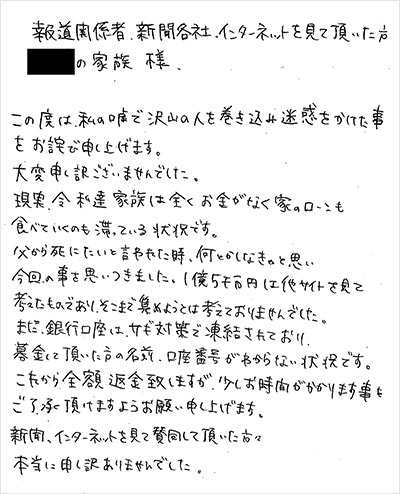 報道関係者、新聞各社、インターネットを見て頂いた方
の家族 様、
この度は、私の嘘で沢山の人を巻き込み迷惑をかけた事
をお詫び申し上げます。
大変申し訳ございませんでした。
現実、今 私達 家族は全くお金がなく家のローンも
食べていくのも 滞っている 状況です。
父から死にたいと言われた時、何とかしなきゃと思い
今回の事を思いつきました。1億5千万円は他サイトを見て
考えたものであり、そこまで集めようとは考えておりませんでした。
まだ、銀行口座は、サギ対策で凍結されており、
募金して頂いた方の名前、口座番号がわからない状況です。
これから全額 返金致しますが、少しお時間がかかります事も
ご了承頂けますようお願い申し上げます。
新聞、インターネットを見て賛同して頂いた方々
本当に申し訳ありませんでした。